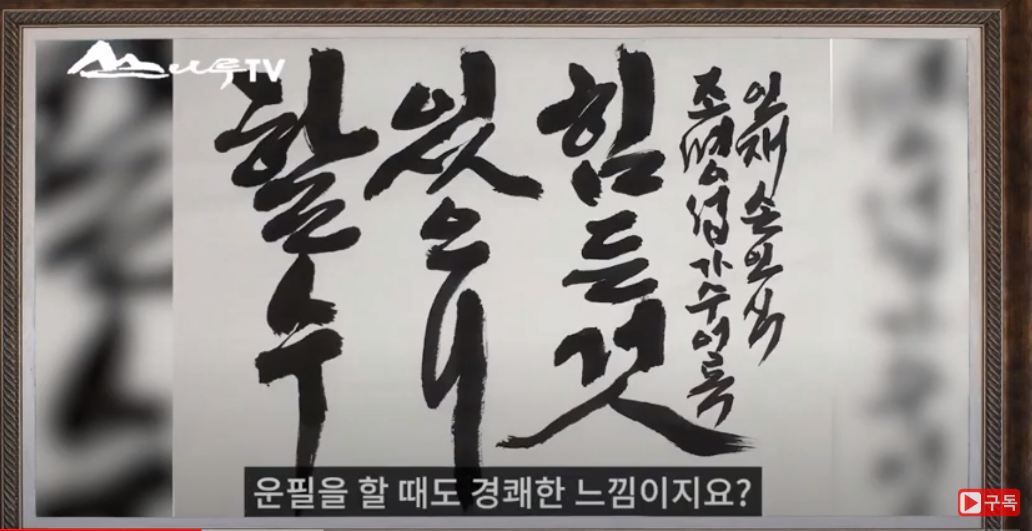 TV
할수
있으니
힘든것
조명섭가수어록
인재 손인식
운필을 할 때도 경쾌한 느낌이지요?
구독